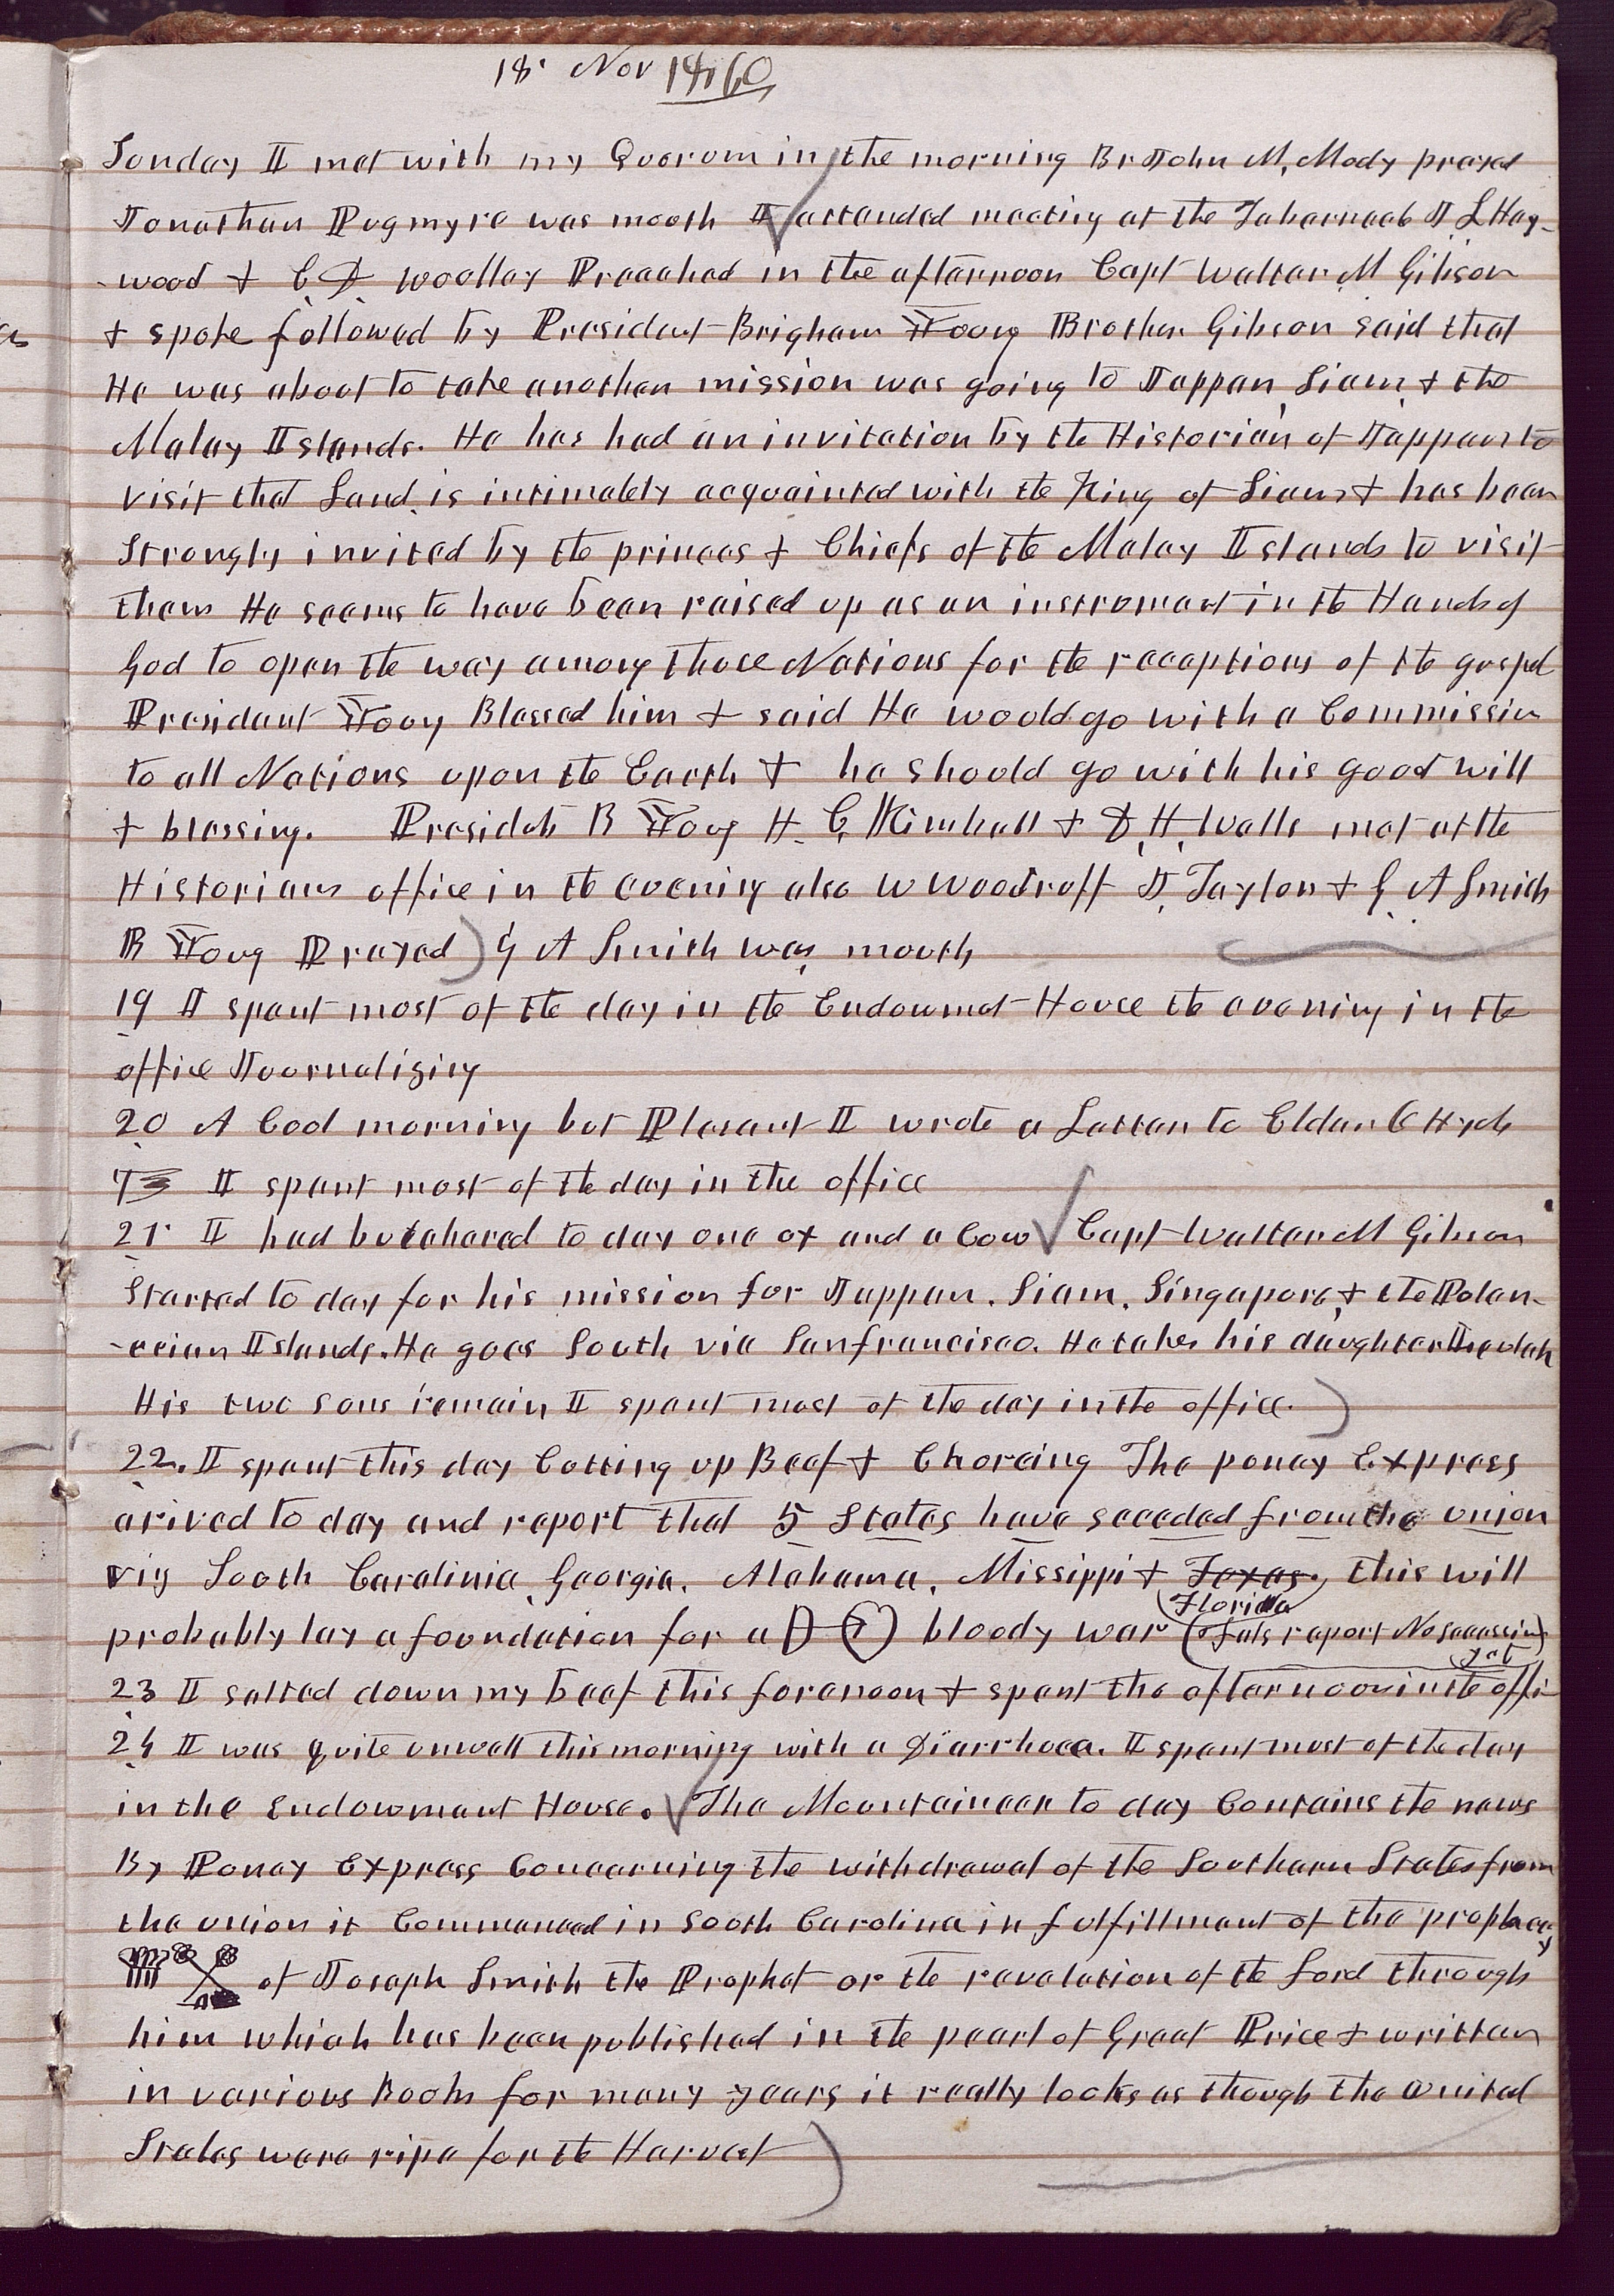 18 Nov 1860
Sunday I met with my Quorum in the morning Br John M, Mody prayed
Jonathan Pugmyre was mooth I attended meeting at the Tabernacle J L Hay-
-wood & E. D. Woolley Preached in the afternoon Capt Walter M Gibson
& spoke followed by President Brigham Young Brother Gibson said that
He was about to take another mission was going to Jappan, Siam, & the
Malay Islands. He has had an invitation by the Historian of Jappan to
visit that Land, is intimately acquainted with the King of Siam & has been
Strongly invited by the princes & Chiefs of the Malay Islands to visit
them He seems to have been raised up as an instrument in the Hands of
God to open the way among those Nations for the receptions of the gospel
President Young Blessed him & said He would go with a Commission
to all Nations upon the Earth & he should go with his good will
& blessing. Presidets B Young H. C. Kimball & D. H. Wells met at the
Historians office in the evening also W Woodruff J, Taylor & G, A Smith
B Young Prayed) G A Smith was, mouth
19 I spent most of the day in the Endowmet House the evening in the
office Journalizing
20 A Cool morning but Plesant I wrote a Letter to Elder O Hyde
I spent most of the day in the office
21 I had butchered to day one ox and a Cow Capt Walter M Gibson
Started to day for his mission for Jappan. Siam. Singapore, & the Polan-
-ecian Islands. He goes South via Sanfrancisco. He takes his daughter
His two sons remain I spent most of the day in the office.)
22. I spent this day Cutting up Beef & Choreing The poney Express
arived to day and report that 5 States have seceded from the union
viz South Carolinia, Georgia. Alabama. Missippi & Texas. this will
(Florida
probably lay a foundation for a bloody war (Fals report No secession)
yet
23 I salted down my beef this forenoon & spent the afternoon in the offi
24 I was quite unwell this morning with a Diarrhoea. I spent most of the day
in the Endowment House. The Mountaineer to day Contains the news
By Poney Express Concerning the withdrawal of the Southern States from
the union it Commenced in South Carolina in fulfillment of the prophecy
of Joseph Smith the Prophet or the revelation of the Lord through
him which has been published in the pearl of Great Price & written
in various Books for many years it really looks as though the United
States were ripe for the Harvest)